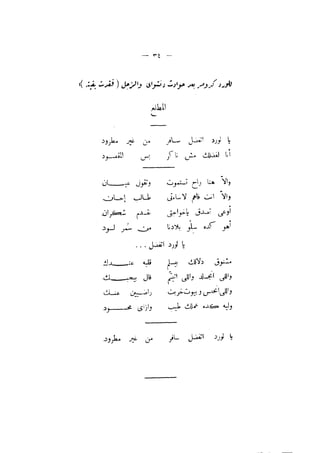 — ٣٤ —
للورد كرومر بعد حوادث دنشواى والزجل ( فقدت بقيته )
المطلع
يا لورد اتفضل سافر من غير مطرود
أنا لفضلك مش ناكر بس المقصود
والا هنا راح تستموت وتقول عيان
والا انت فاهم لا ساءتى طالب إحسان
أوعى تصدق ياخواجتى تقدم شكران
أهو كده سلو بلادنا من سمر لسود
يا لورد اتفضل . . .
مشنوق دلالك بيسلم قلبه عندك
واللى انجلد واللى اليتم قال بيحبك
واللى انحبس وبيوت خربت راضيين عنك
وليه كده عملك طيب وازاى محمود
يا لورد اتفضل سافر من غير مطرود